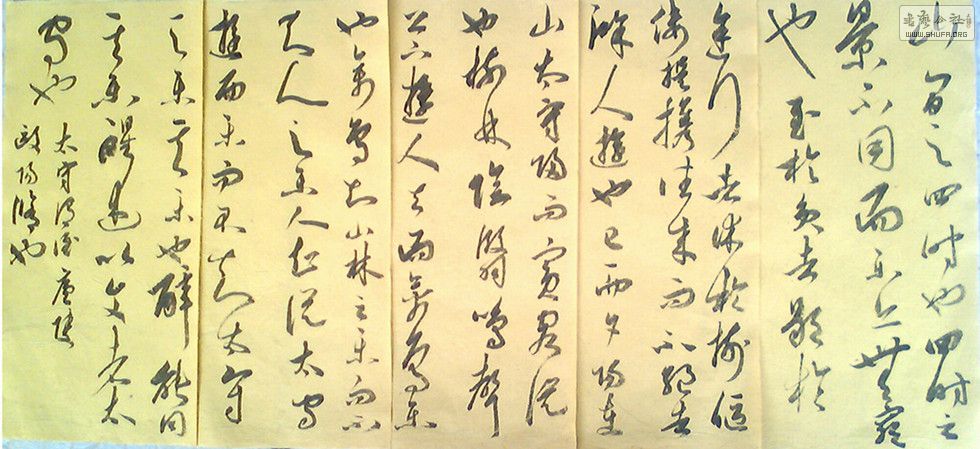 山間之四時也四時之
景不同而樂亦無窮
也至於負者歌於
途行者休於樹傴
僂提攜往來而不絕者
滁人遊也已而夕陽在
山太守歸而賓客從
也樹林陰翳鳴聲
上下遊人去而禽鳥樂
也禽鳥知山林之樂而不
知人之樂人知從太守
遊而樂而不知太守
之樂其樂也醉能同
其樂醒述以文者太
守也
太守謂誰廬陵
歐陽脩也
书艺公社
WWW.SHUFA.ORG